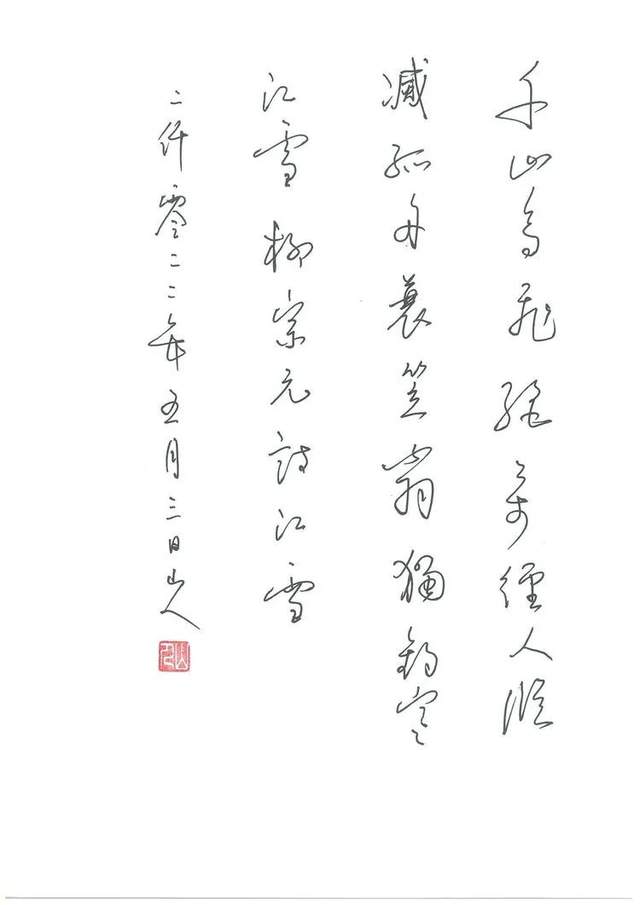 千山鳥飛絕萬徑人蹤
滅孤舟蓑笠翁獨釣寒
江雪柳宗元詩江雪
二仟零二二年五月三日山人